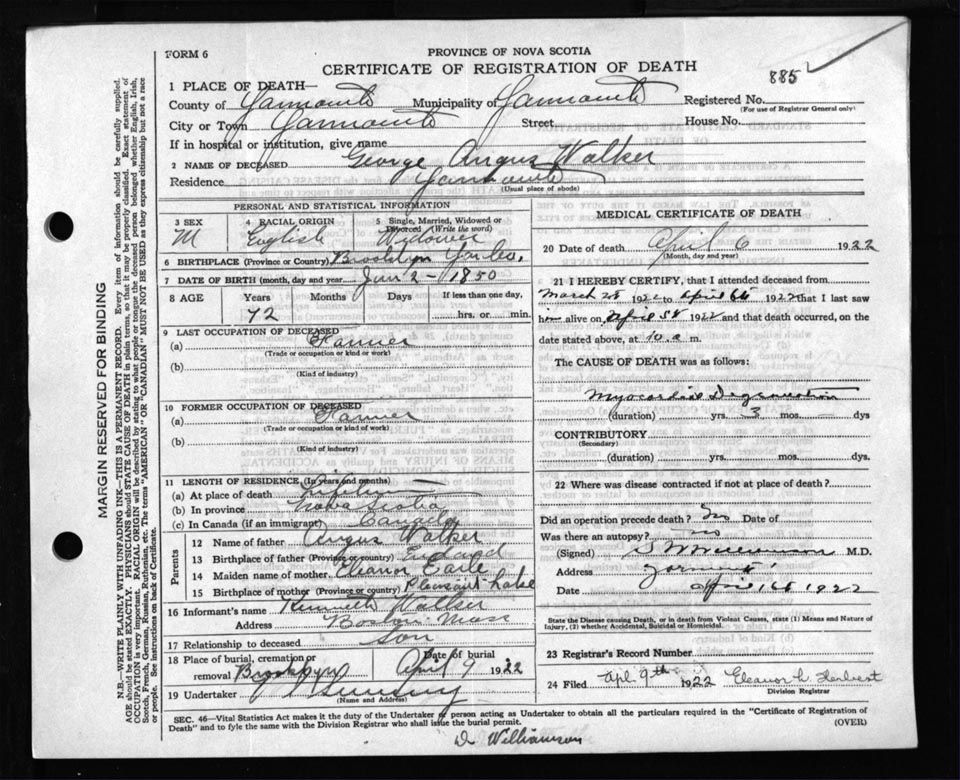 FORM 6
PROVINCE OF NOVA SCOTIA
CERTIFICATE OF REGISTRATION OF DEATH
885
1 PLACE OF DEATH—
County of Yarmouth Municipality of Yarmouth Registered No.
(For use of Registrar General only)
City or Town Yarmouth Street House No.
If in hospital or institution, give name
2 NAME OF DECEASED George Angus Walker
Residence Yarmouth
(Usual place of abode)
PERSONAL AND STATISTICAL INFORMATION
3 SEX 4 RACIAL ORIGIN 5 Single, Married, Widowed or Divorced (Write the word)
M English Widower
6 BIRTHPLACE (Province or Country) Brooklyn Yar Co.
7 DATE OF BIRTH (month, day and year) Jan 2 - 1850
8 AGE Years Months Days If less than one day,
72 hrs. or min.
9 LAST OCCUPATION OF DECEASED
(a) Farmer
(Trade or occupation or kind or work)
(b)
(Kind of industry)
10 FORMER OCCUPATION OF DECEASED
(a) Farmer
(Trade or occupation or kind or work)
(b)
(Kind of industry)
11 LENGTH OF RESIDENCE (In years and months)
(a) At place of death
(b) In province Nova Scotia
(c) In Canada (if an immigrant) Canada
Parents
12 Name of father Angus Walker
13 Birthplace of father (Province or country)
14 Maiden name of mother Eleanor Earle
15 Birthplace of mother (Province or country) Pleasant Lake
16 Informant's name Kenneth Walker
Address Boston Mass
17 Relationship to deceased Son
18 Place of burial, cremation or removal Brooklyn Date of burial April 9 1922
19 Undertaker
(Name and Address)
MEDICAL CERTIFICATE OF DEATH
20 Date of death April 6 1922
(Month, day and year)
21 I HEREBY CERTIFY, that I attended deceased from
March 1922 to April 6th 1922 that I last saw
him alive on April 5th 1922 and that death occurred, on the
date stated above, at 10. a m.
The CAUSE OF DEATH was as follows:
Myocardial Degeneration
(duration) yrs. 3 mos. dys
CONTRIBUTORY
(Secondary)
(duration) yrs. mos. dys
22 Where was disease contracted if not at place of death?
Did an operation precede death? no Date of
Was there an autopsy? no
(Signed) M.D.
Address Yarmouth
Date April 1922
State the Disease Causing Death, or in death from Violent Causes, state (1) Means and Nature of Injury, (2) whether Accidental, Suicidal or Homicidal.
23 Registrar's Record Number
24 Filed Apl. 9th 1922 Eleanor L. Herbert
Division Registrar
SEC. 46—Vital Statistics Act makes it the duty of the Undertaker or person acting as Undertaker to obtain all the particulars required in the "Certificate of Registration of
Death" and to fyle the same with the Division Registrar who shall issue the burial permit. (OVER)
D Williamson
MARGIN RESERVED FOR BINDING
N.B.—WRITE PLAINLY WITH UNFADING INK—THIS IS A PERMANENT RECORD. Every item of information should be carefully supplied.
AGE should be stated EXACTLY. PHYSICIANS should STATE CAUSE OF DEATH in plain terms, so that it may be properly classified. Exact statement of
OCCUPATION is very important. RACIAL ORIGIN will be described by stating to what people or tongue the deceased person belonged whether English, Irish,
Scotch, French, German, Russian, Ruthenian, etc. The terms "AMERICAN" OR "CANADIAN" MUST NOT BE USED as they express citizenship but not a race
or people. See instructions on back of Certificate.